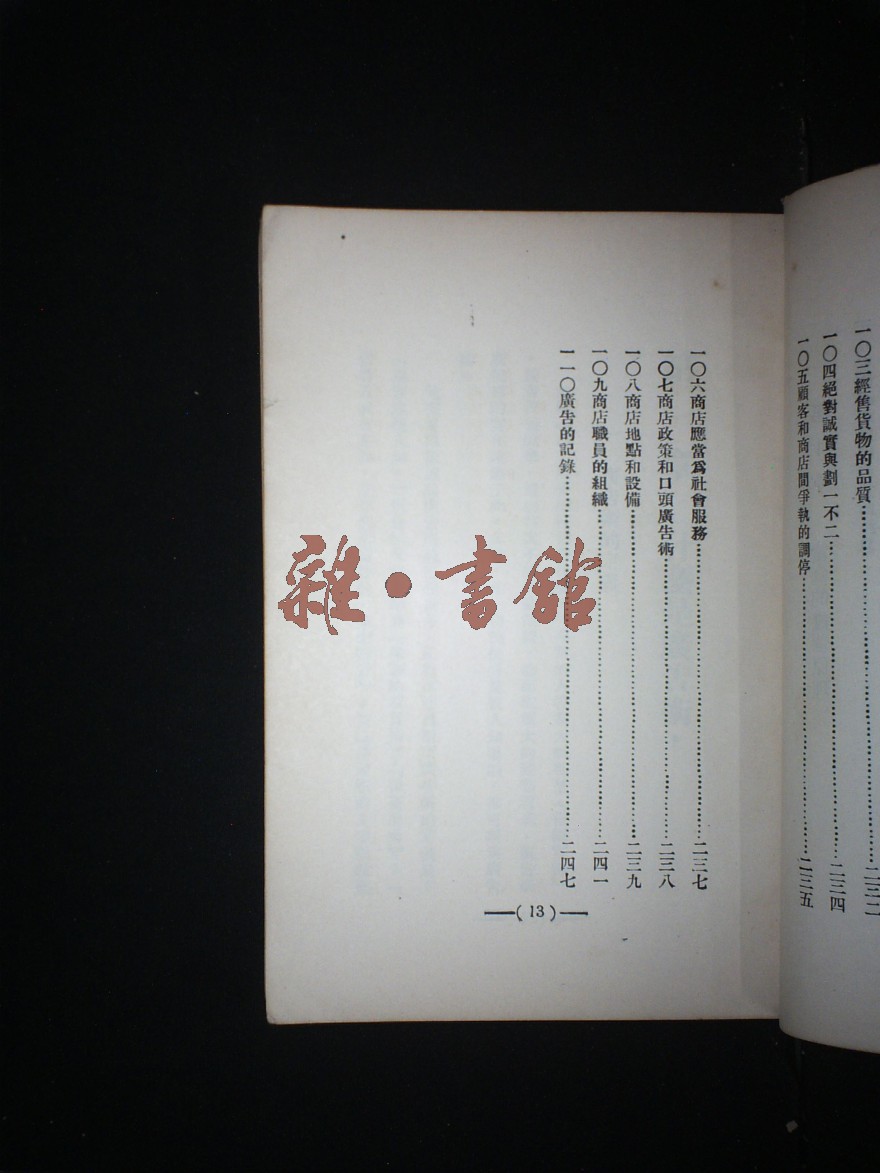 一〇三經售貨物的品質……二三二
一〇四絕對誠實與劃一不二……二三四
一〇五顧客和商店間爭執的調停……二三五
一〇六商店應當爲社會服務……二三七
一〇七商店政策和口頭廣告術……二三八
一〇八商店地點和設備……二三九
一〇九商店職員的組織……二四一
一一〇廣告的記錄……二四七
—( 13 )—
雜·書館